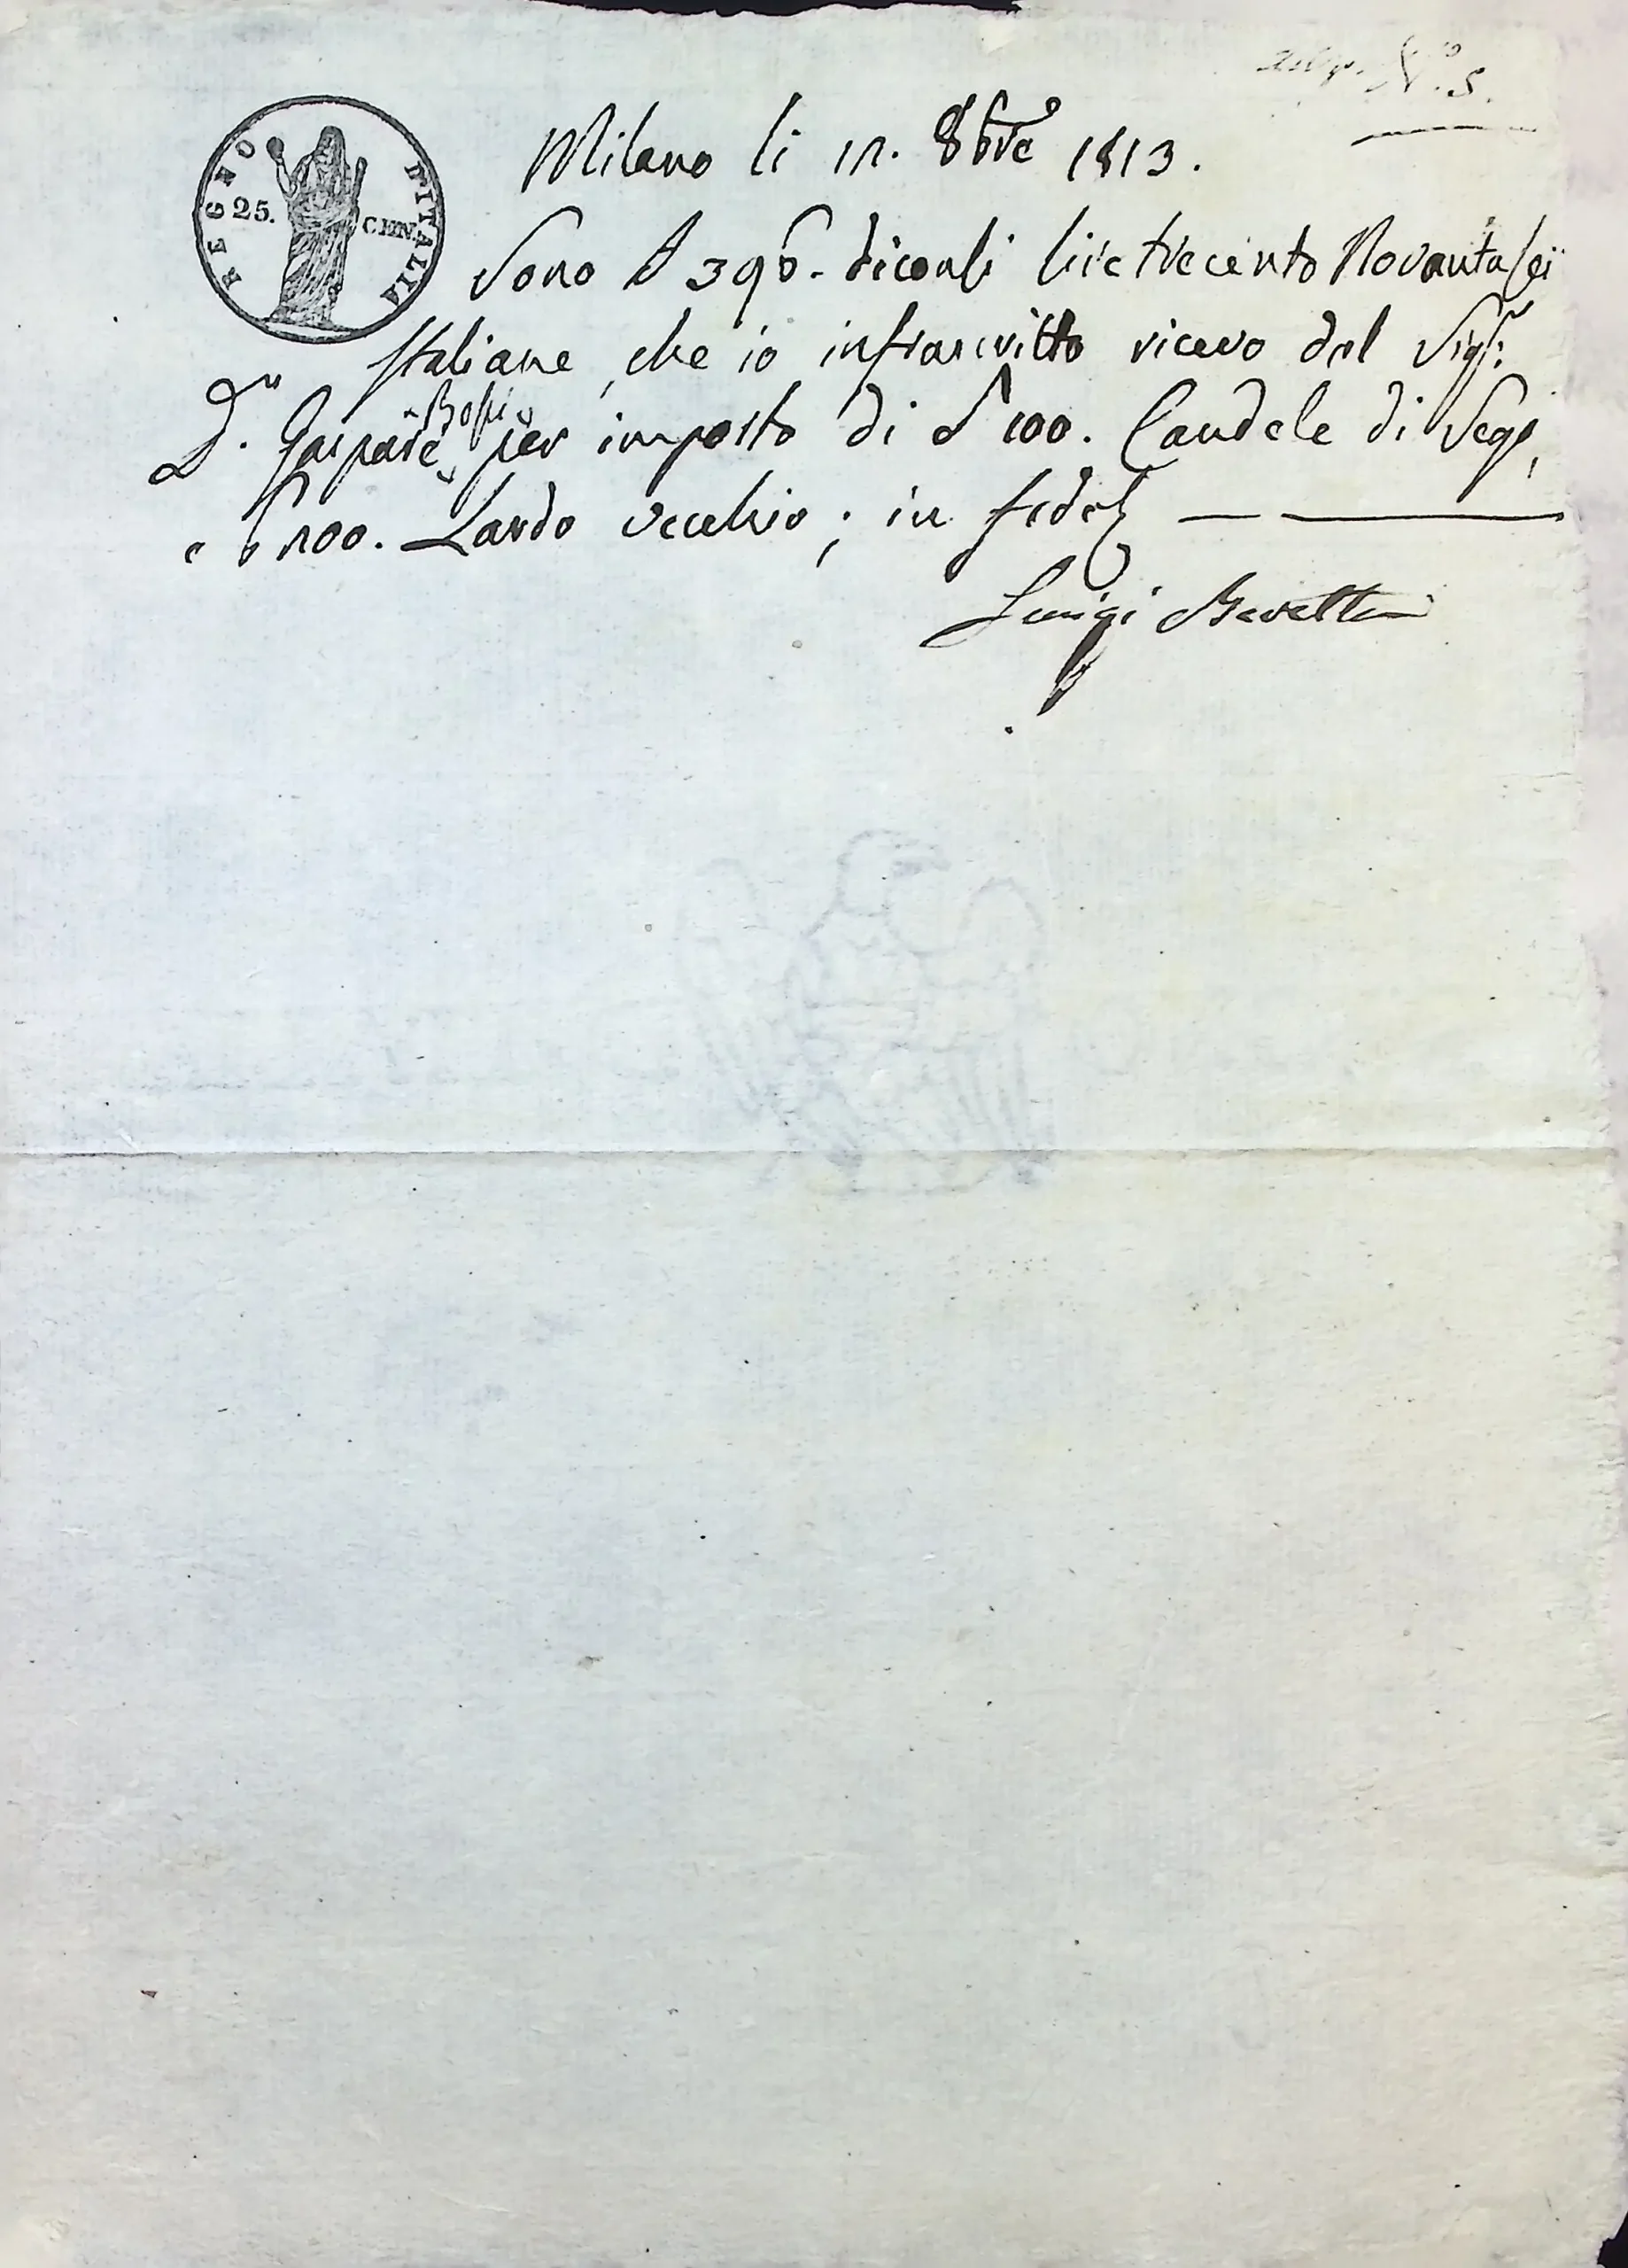 N.º 5.
REGNO D'ITALIA
25. CEN.
Milano li 12. 8bre 1813.
Sono £ 396. diconsi lire trecento Novanta sei
Italiane, che io infrascritto ricevo dal Sigr:
Dn. Gaspare Bossi per importo di £ 100. Candele di Sego,
e £ 100. Lardo vecchio; in fede
Luigi Beretta